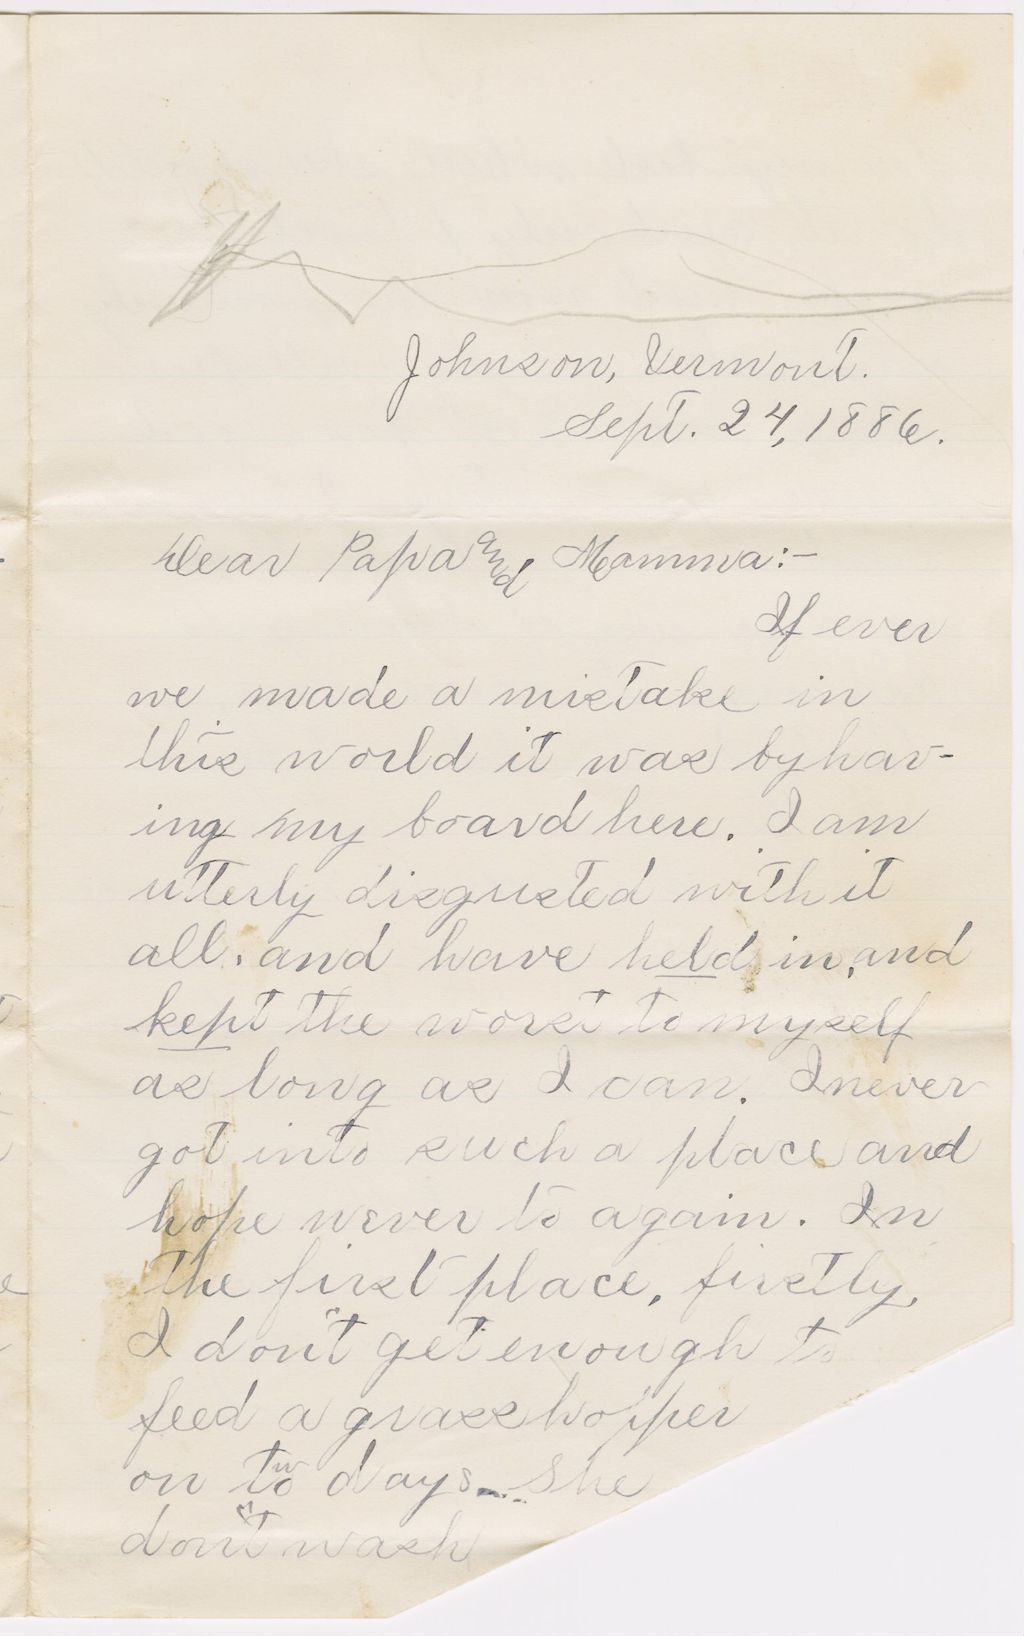 Johnson, Vermont.
Sept. 24, 1886.
Dear Papa and Mamma:-
If ever
we made a mistake in
this world it was by hav-
ing my board here. I am
utterly disgusted with it
all. and have held in, and
kept the worst to myself
as long as I can. I never
got into such a place and
hope never to again. In
the first place, firstly,
I don't get enough to
feed a grasshopper
on two days. She
don't wash